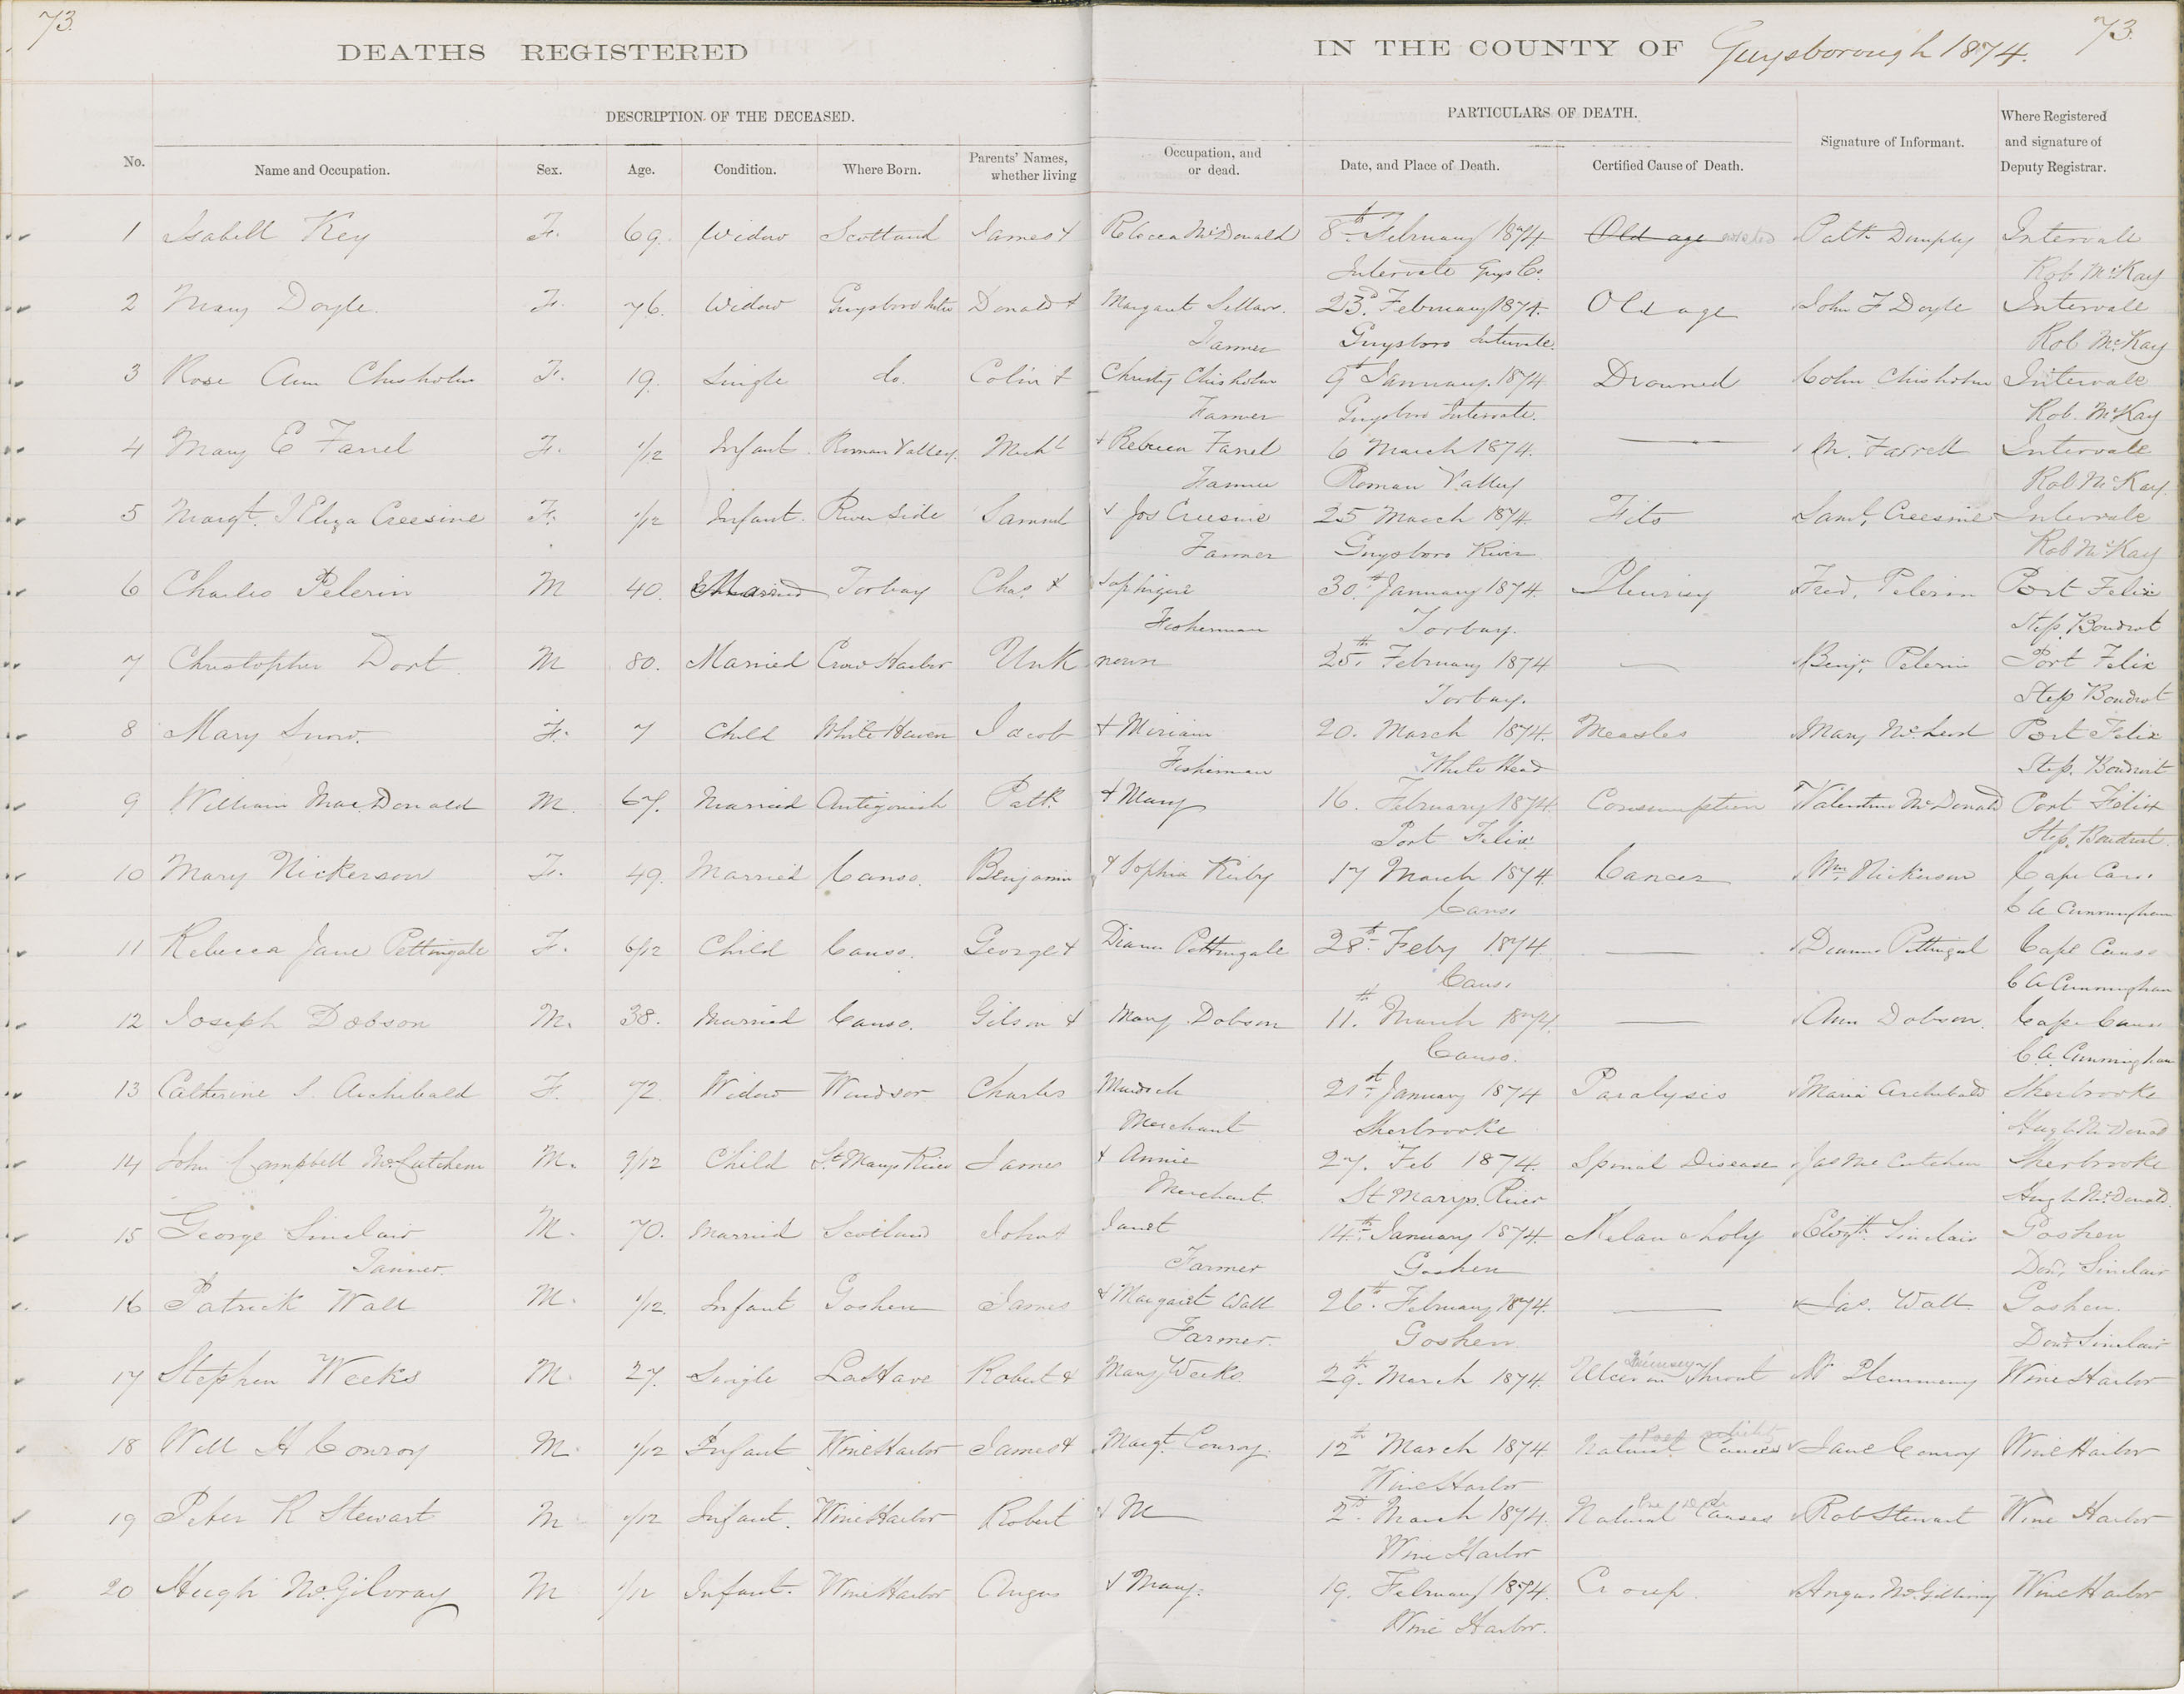 73.
73.
DEATHS REGISTERED IN THE COUNTY OF Guysborough 1874.
DESCRIPTION OF THE DECEASED. PARTICULARS OF DEATH.
No. Name and Occupation. Sex. Age. Condition. Where Born. Parents' Names, whether living Occupation, and or dead. Date, and Place of Death. Certified Cause of Death. Signature of Informant. Where Registered and signature of Deputy Registrar.
1 Isabell Key F. 69. Widow Scotland James & Rebecca McDonald 8th February 1874 Old age Patk Dumphy Intervale
Intervale Guys Co. Rob McKay
2 Mary Doyle. F. 76. Widow Guysboro Donald & Margaret Sellars. 23d February 1874. Old age John F Doyle Intervale
Farmer Guysboro Intervale. Rob McKay
3 Rose Ann Chisholm F. 19. Single do. Colin & Christy Chisholm 9th January. 1874. Drowned Colin Chisholm Intervale
Farmer Guysboro Intervale. Rob. McKay
4 Mary E Farrel F. 1/12 Infant Roman Valley. Michl & Rebecca Farrel 6 March 1874. M. Farrell Intervale
Farmer Roman Valley Rob McKay.
5 Margt. J Eliza Creesine F. 1/12 Infant. River Side Samuel & Jos Creesine 25 March 1874. Fits Saml. Creesine Intervale
Farmer Guysboro River Rob McKay
6 Charles Pelerin M 40. Married Torbay Chas. & Sophique 30th January 1874. Pleurisy Fred. Pelerin Port Felix
Fisherman Torbay. Step. Boudrot
7 Christopher Dort M 80. Married Crow Harbor Unk nown 25th February 1874 Benjn Pelerin Port Felix
Torbay. Step Boudrot
8 Mary Snow. F. 7 Child White Haven Jacob & Miriam 20. March 1874. Measles Mary McLeod Port Felix
Fisherman White Head Step. Boudrot
9 William MacDonald M. 67. Married Antigonish Patk & Mary 16. February 1874. Consumption Valentine McDonald Port Felix
Port Felix. Step. Boudrot.
10 Mary Nickerson F. 49. Married Canso. Benjamin & Sophia Kirby 17 March 1874. Cancer Wm. Nickerson Cape Canso
Canso C A Cunningham
11 Rebecca Jane Pettingale F. 6/12 Child Canso. George & Diana Pettingale 28th Feby 1874. Cape Canso
Canso C A Cunningham
12 Joseph Dobson M. 38. Married Canso. Gilson & Mary Dobson 11th March 1874. Ann Dobson. Cape Canso
Canso. C. A. Cunningham
13 Catherine S. Archibald F. 72. Widow Windsor Charles Murdoch 21st January 1874 Paralysis Maria Archibald Sherbrooke
Merchant Sherbrooke Hugh McDonald
14 John Campbell McCutchen M. 9/12 Child St Marys River James & Annie 27. Feb 1874. Spinal Disease Jas McCutchen Sherbrooke
Merchant. St Marys River Hugh McDonald
15 George Sinclair M. 70. Married Scotland John & Janet 14th January 1874. Melancholy Elizth Sinclair Goshen
Tanner. Farmer Goshen Dond. Sinclair
16 Patrick Wall M. 1/12. Infant Goshen James & Margaret Wall 26th February 1874. Jas. Wall Goshen.
Farmer. Goshen Dond. Sinclair
17 Stephen Weeks M. 27. Single LaHave Robert & Mary Weeks 29th March 1874. Ulcer on Throat Wine Harbor
18 Will H Conroy M. 1/12 Infant Wine Harbor James & Margt. Conroy. 12th March 1874 Natural Causes Jane Conroy Wine Harbor
Wine Harbor
19 Peter R Stewart M 1/12 Infant. Wine Harbor Robert & M 2d March 1874. Natural Causes Rob Stewart Wine Harbor
Wine Harbor
20 Hugh McGilvray M 1/12 Infant. Wine Harbor Angus & Mary. 19. February 1874. Croup. Angus McGillivray Wine Harbor
Wine Harbor.